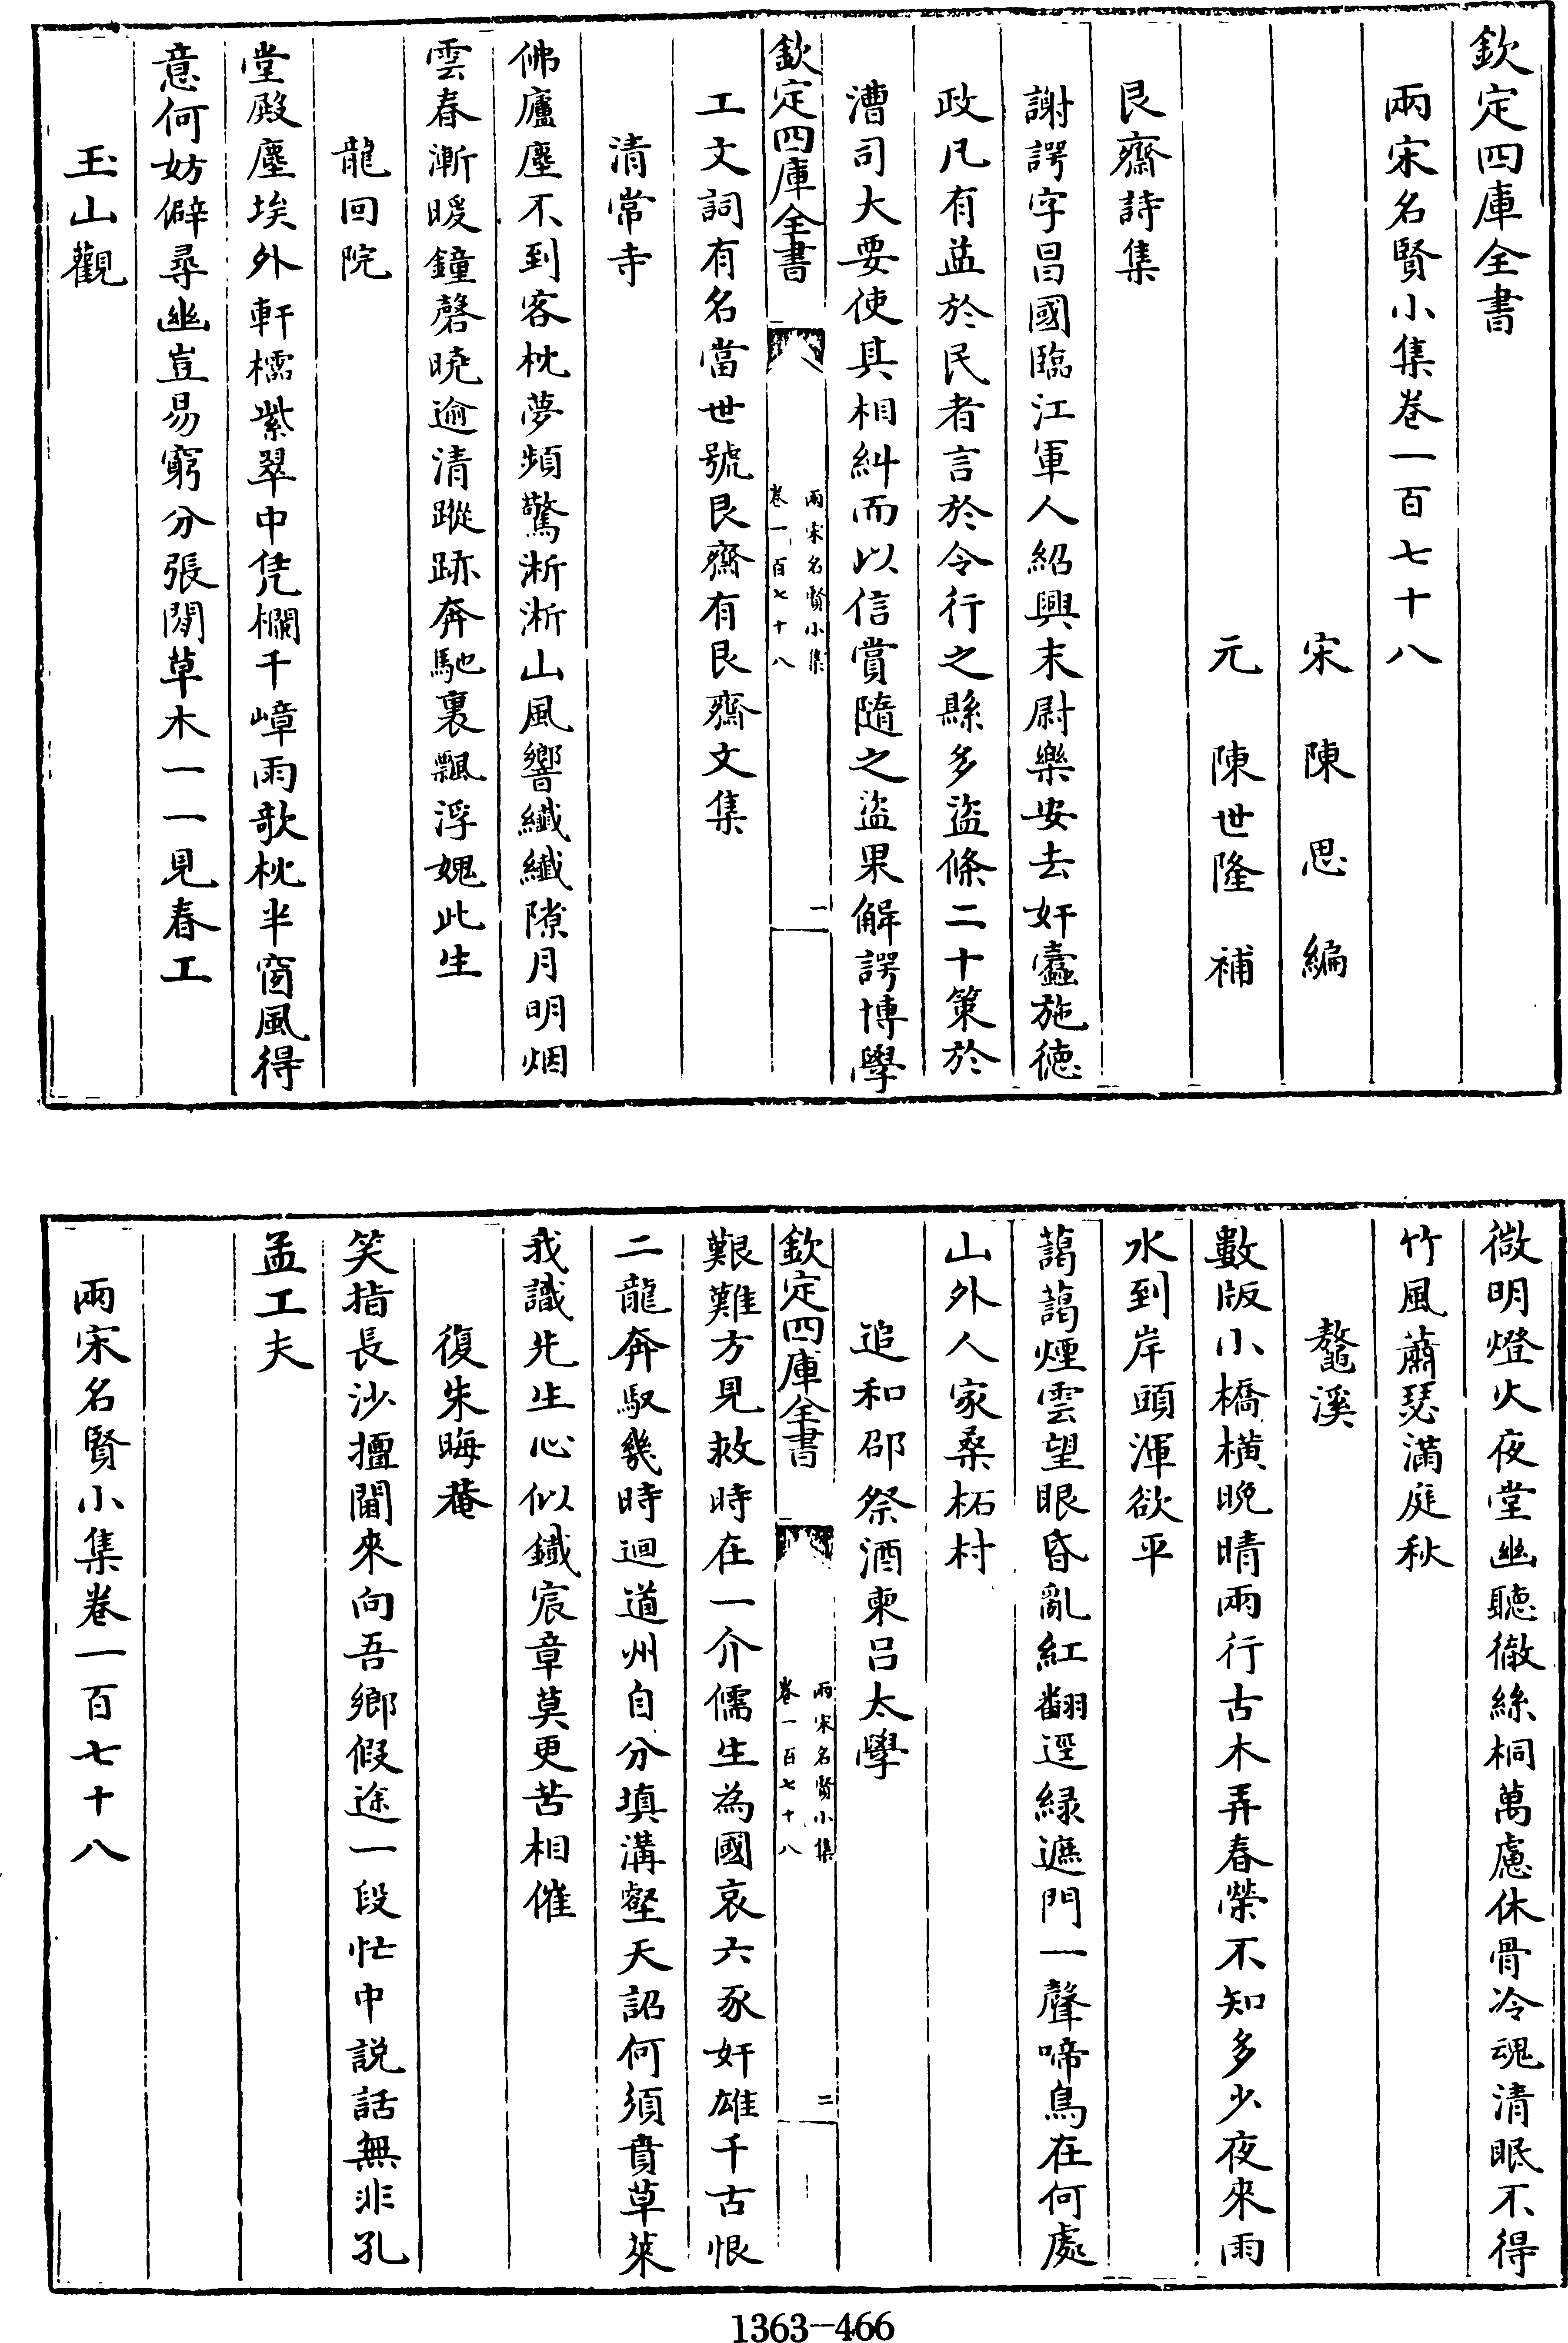 欽定四庫全書
兩宋名賢小集卷一百七十八
宋陳思編
元陳世隆補
艮齋詩集
謝諤字昌國臨江軍人紹興末尉樂安去奸蠹施徳
政凡有益於民者言於令行之縣多盜條二十策於
漕司大要使其相糾而以信賞隨之盜果解諤博學
欽定四庫全書
兩宋名賢小集
卷一百七十八
一
工文詞有名當世號艮齋有艮齋文集
清常寺
佛廬塵不到客枕夢頻驚淅淅山風響纖纖隙月明烟
雲春漸暖鐘磬曉逾清蹤跡奔馳裏飄浮媿此生
龍回院
堂殿塵埃外軒櫺紫翠中凭欄千嶂雨欹枕半窗風得
意何妨僻尋幽豈易窮分張閒草木一一見春工
玉山觀
微明燈火夜堂幽聽徹絲桐萬慮休骨冷魂清眠不得
竹風蕭瑟滿庭秋
鰲溪
數版小橋橫晚晴兩行古木弄春榮不知多少夜來雨
水到岸頭渾欲平
藹藹煙雲望眼昏亂紅翻逕緑遮門一聲啼鳥在何處
山外人家桑柘村
追和邵祭酒柬呂太學
欽定四庫全書
兩宋名賢小集
卷一百七十八
二
艱難方見救時在一介儒生為國哀六豕奸雄千古恨
二龍奔馭幾時迴道州自分填溝壑天詔何須賁草萊
我識先生心似鐵宸章莫更苦相催
復朱晦菴
笑指長沙擅閫來向吾鄉假途一段忙中説話無非孔
孟工夫
兩宋名賢小集卷一百七十八
1363-466